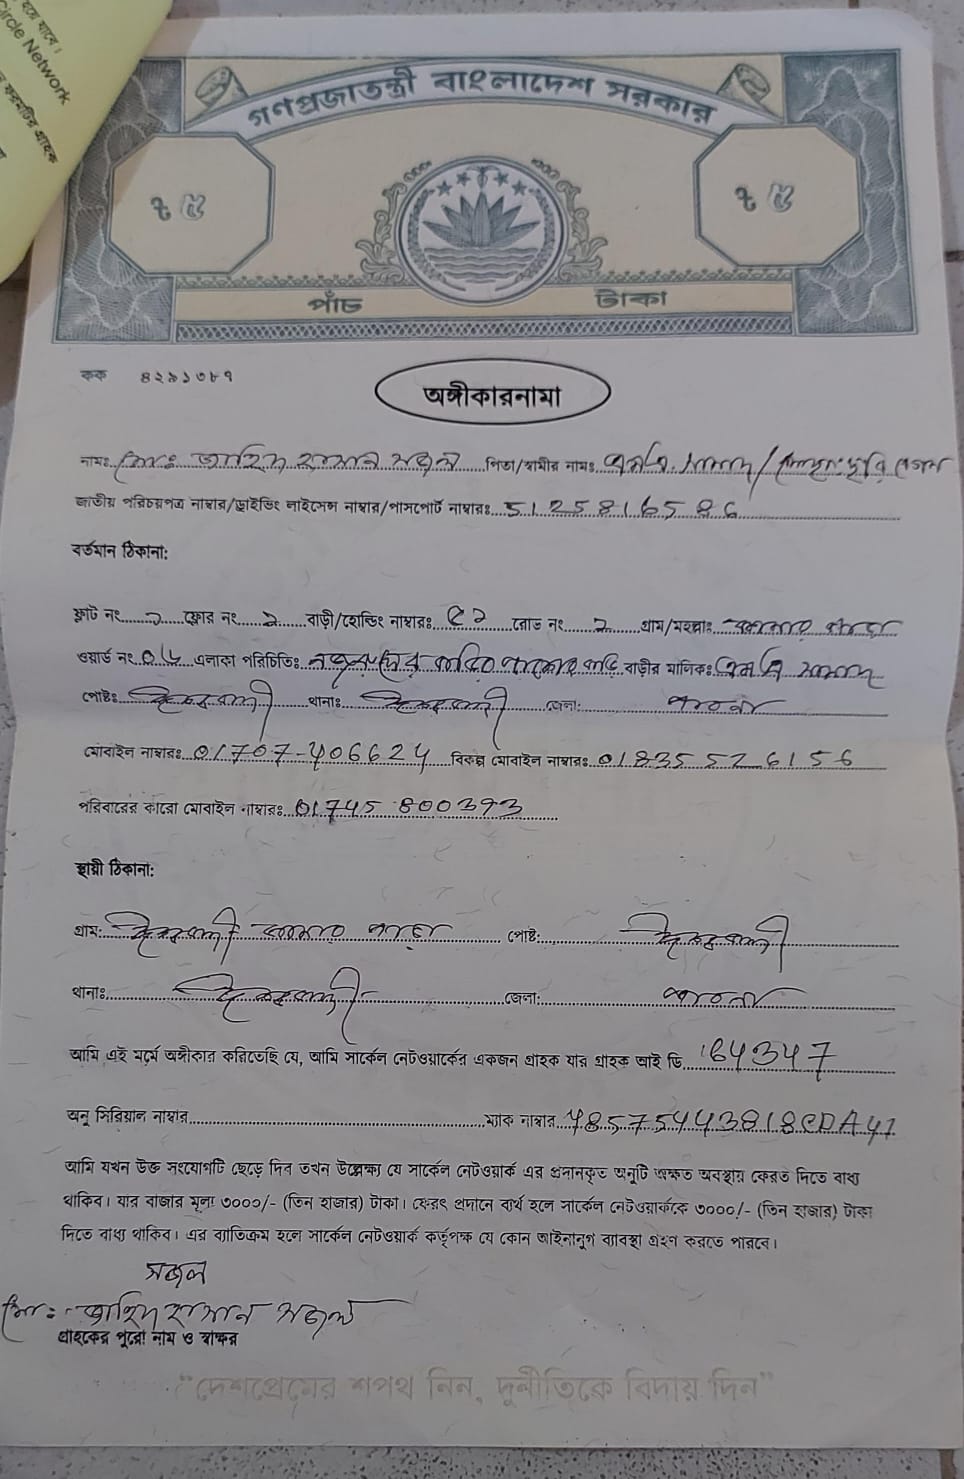 হয়ে যাবে।
Circle Network
গণপ্রজাতন্ত্রী বাংলাদেশ সরকার
৳ ৫ ৳ ৫
পাঁচ টাকা
কক ৪২৯১৩৮৭
অঙ্গীকারনামা
নামঃ মোঃ জাহিদ হাসান সজল পিতা/স্বামীর নামঃ
জাতীয় পরিচয়পত্র নাম্বার/ড্রাইভিং লাইসেন্স নাম্বার/পাসপোর্ট নাম্বারঃ 5125816586
বর্তমান ঠিকানা:
ফ্লাট নং ফ্লোর নং বাড়ী/হোল্ডিং নাম্বারঃ রোড নং গ্রাম/মহল্লাঃ
ওয়ার্ড নং এলাকা পরিচিতিঃ বাড়ীর মালিকঃ
পোষ্টঃ ঈশ্বরদী থানাঃ ঈশ্বরদী জেলা: পাবনা
মোবাইল নাম্বারঃ 01707-406624 বিকল্প মোবাইল নাম্বারঃ 01835526156
পরিবারের কারো মোবাইল নাম্বারঃ 01745800393
স্থায়ী ঠিকানা:
গ্রাম: পোষ্ট: ঈশ্বরদী
থানাঃ ঈশ্বরদী জেলা: পাবনা
আমি এই মর্মে অঙ্গীকার করিতেছি যে, আমি সার্কেল নেটওয়ার্কের একজন গ্রাহক যার গ্রাহক আই ডি 164347
অনু সিরিয়াল নাম্বার ম্যাক নাম্বার 48575443818CDA41
আমি যখন উক্ত সংযোগটি ছেড়ে দিব তখন উল্লেখ্য যে সার্কেল নেটওয়ার্ক এর প্রদানকৃত অনুটি অক্ষত অবস্থায় ফেরত দিতে বাধ্য
থাকিব। যার বাজার মূল্য ৩০০০/- (তিন হাজার) টাকা। ফেরৎ প্রদানে ব্যর্থ হলে সার্কেল নেটওয়ার্ককে ৩০০০/- (তিন হাজার) টাকা
দিতে বাধ্য থাকিব। এর ব্যতিক্রম হলে সার্কেল নেটওয়ার্ক কর্তৃপক্ষ যে কোন আইনানুগ ব্যবস্থা গ্রহণ করতে পারবে।
সজল
মোঃ জাহিদ হাসান সজল
গ্রাহকের পুরো নাম ও স্বাক্ষর
"দেশপ্রেমের শপথ নিন, দুর্নীতিকে বিদায় দিন"